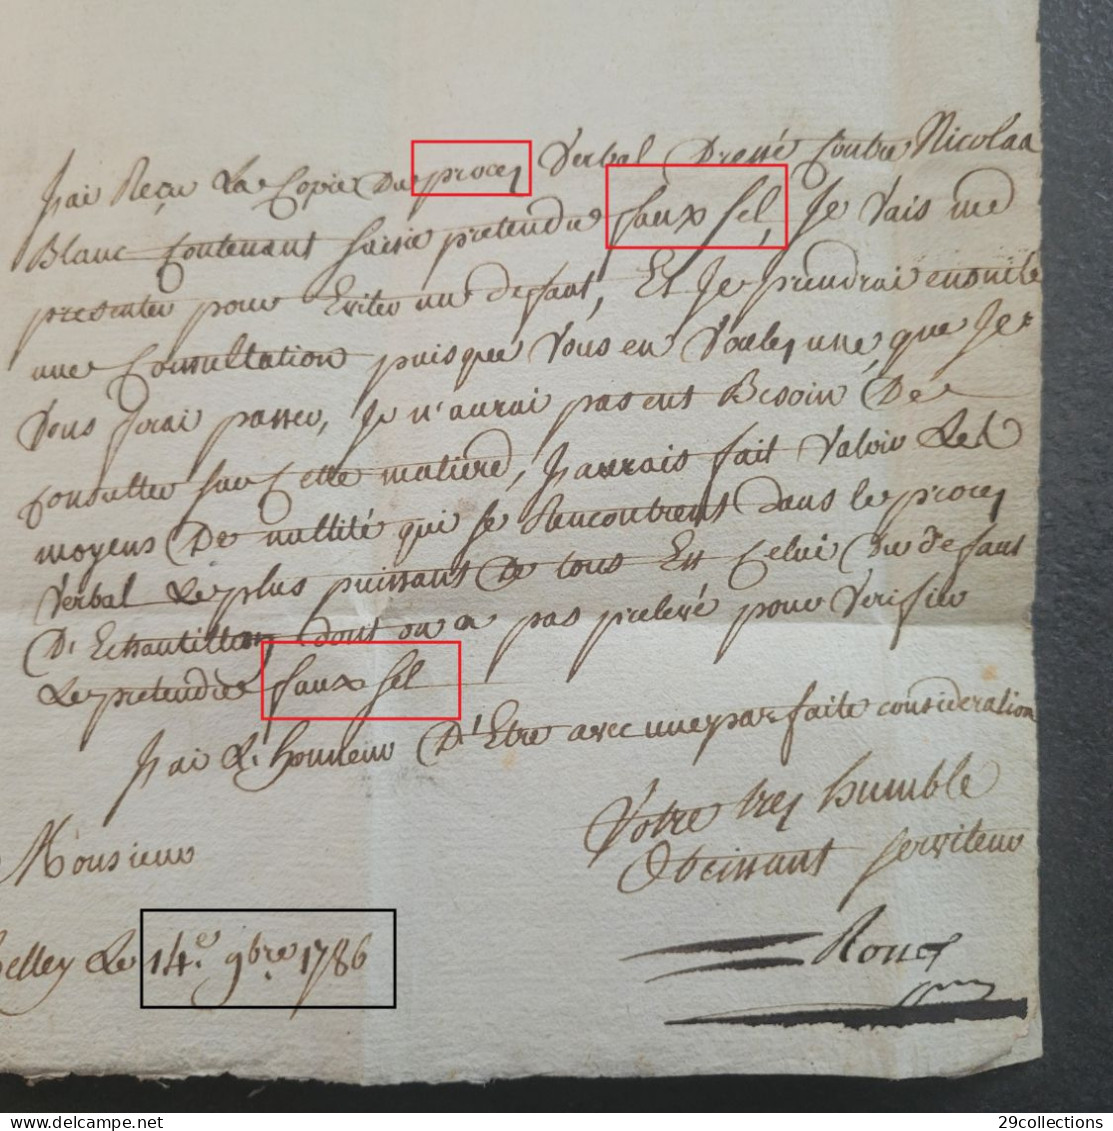 J'ai Reçu La Copie Du proces Verbal Dressé Contre Nicolas
Blanc Contenant saisie pretendu faux sel, Je Vais me
presenter pour Eviter un defaut, Et Je prendrai ensuite
une Consultation puisque Vous en Voules une, que Je
Vous ferai passer, Je n'aurai pas eut Besoin De
Consulter sur Cette matiere, J'aurais fait Valoir Les
moyens De nullité qui se Rencontrent Dans le proces
Verbal Le plus puissant De tous Est Celui Du defaut
D'Echantillon dont on a pas prelevé pour Verifier
Le pretendu faux sel
J'ai L'honneur D'Etre avec une parfaite consideration
Votre tres humble
Obeissant serviteur
Monsieur
Belley Le 14.e 9bre 1786
29collections